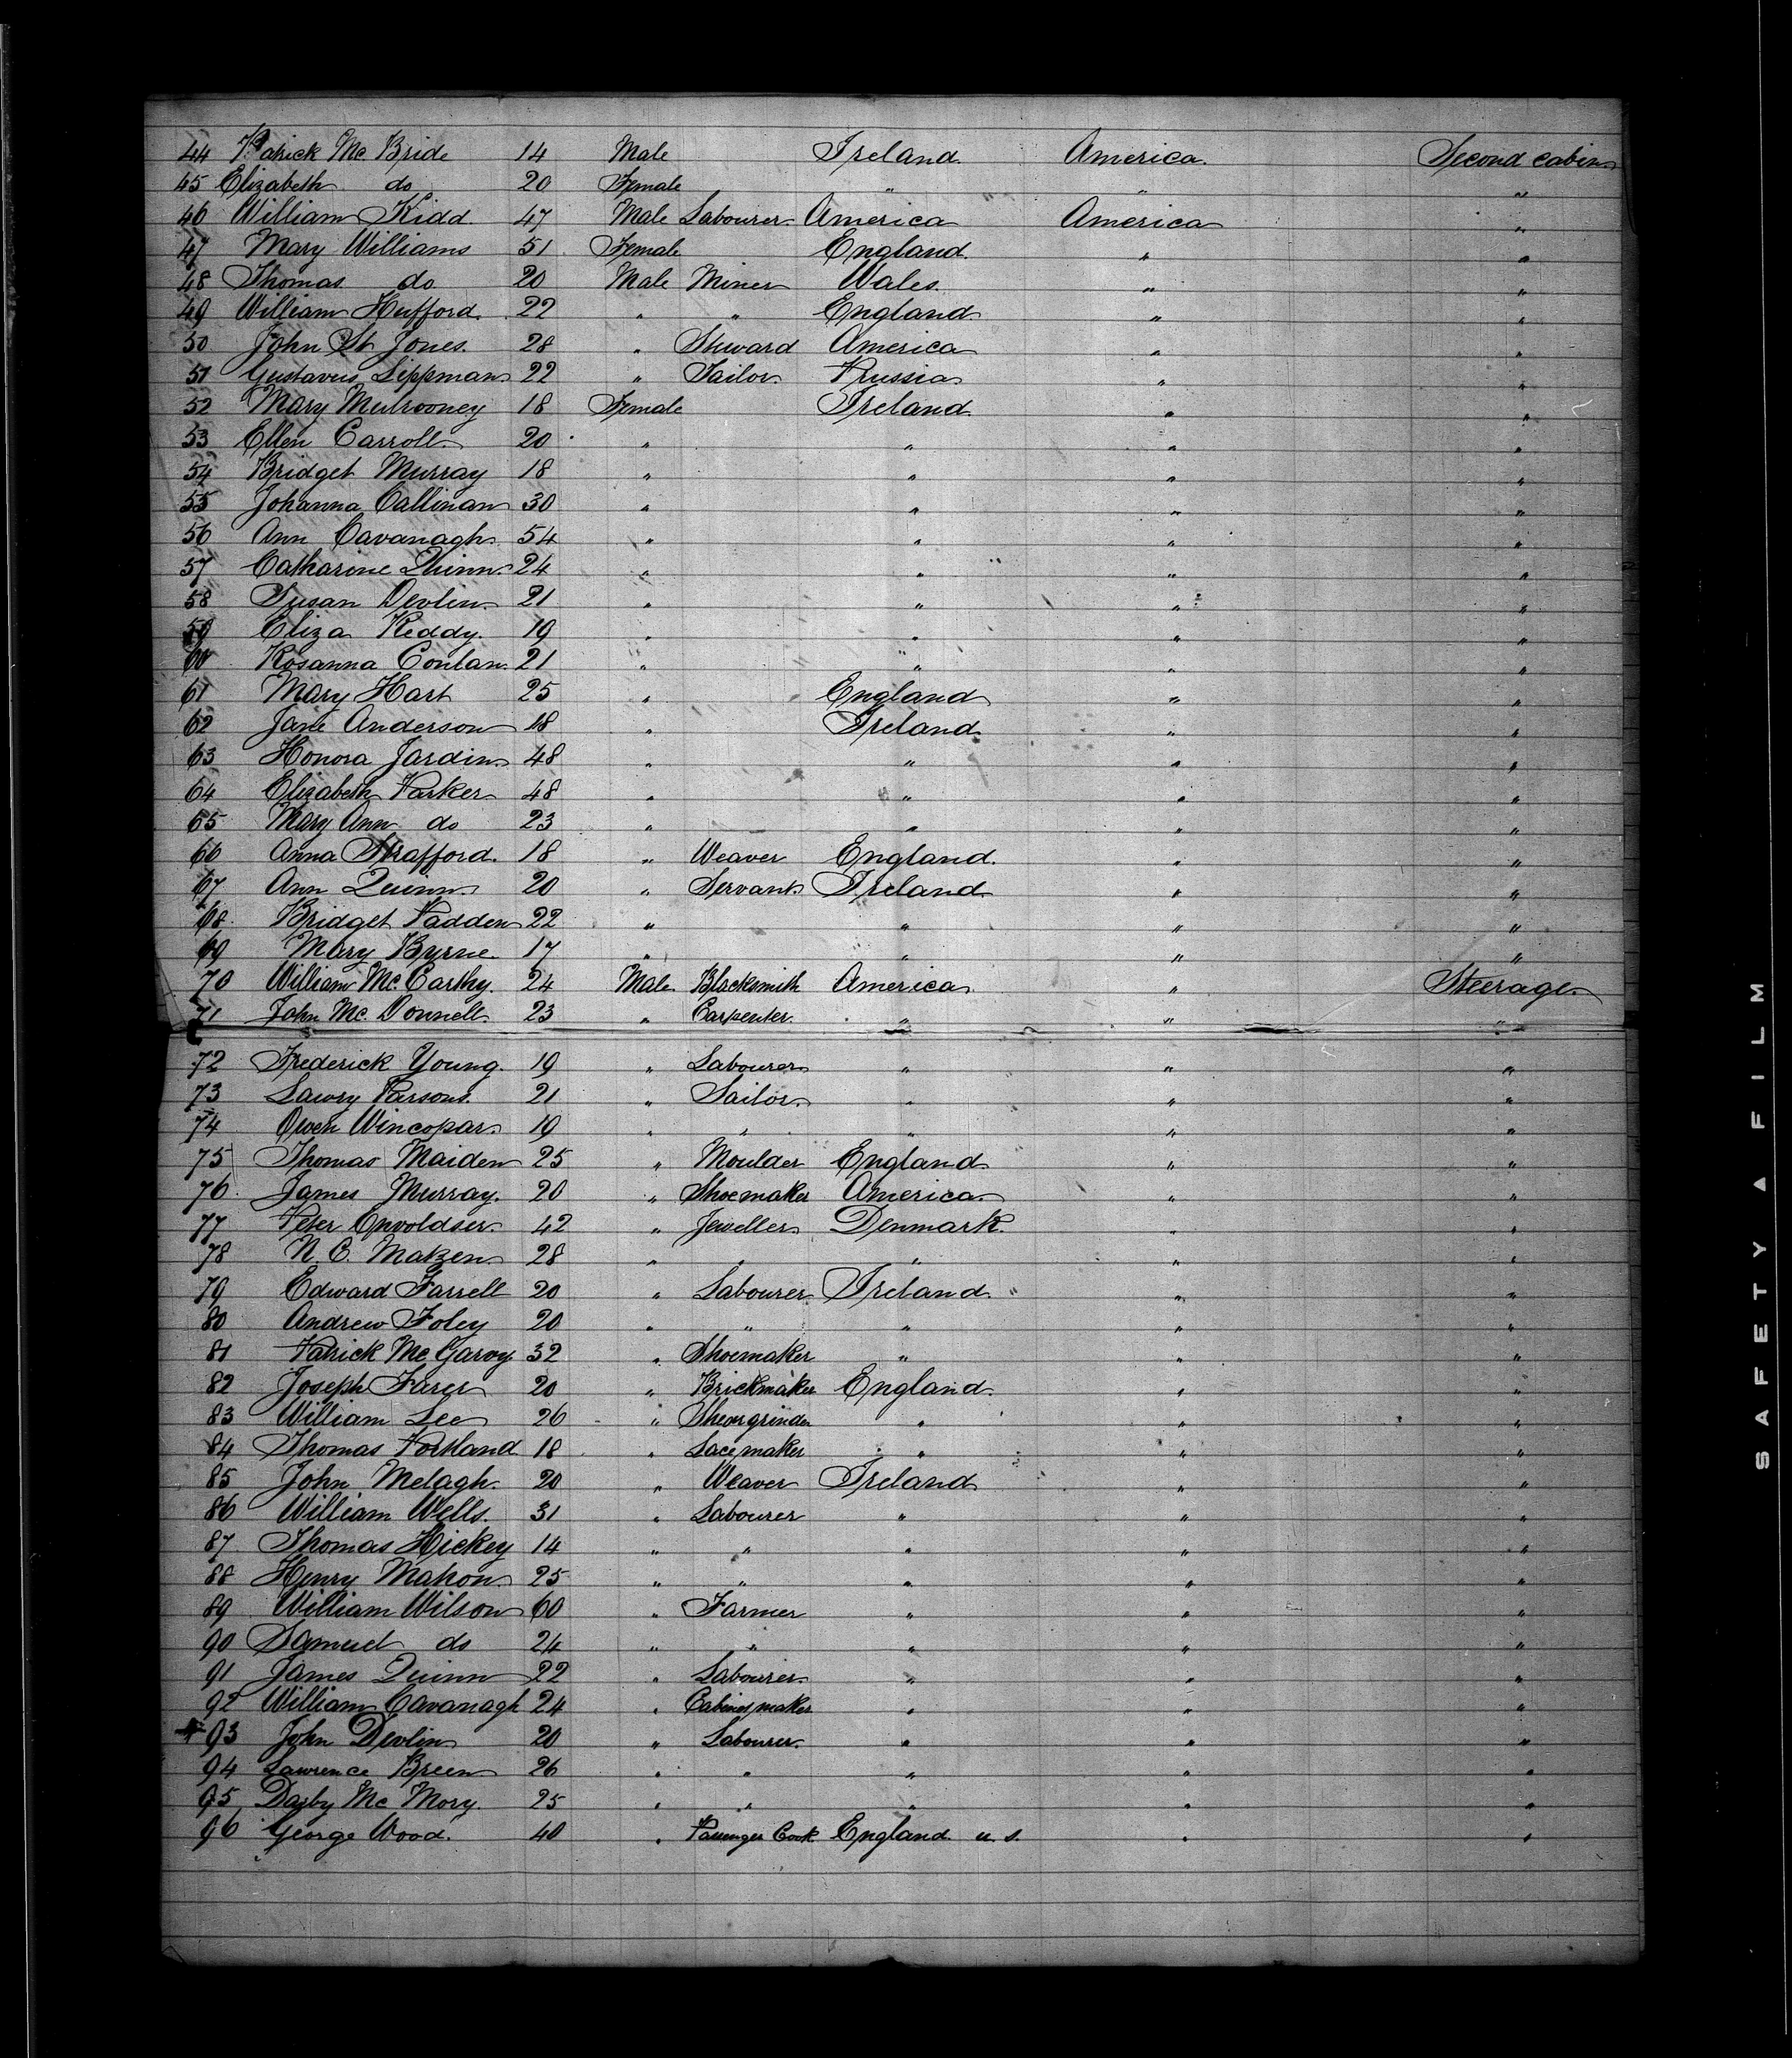 44 Patrick Mc Bride 14 Male Ireland. America. Second cabin
45 Elizabeth do 20 Female " " "
46 William Kidd 47 Male Labourer America America "
47 Mary Williams 51 Female England. " "
48 Thomas do 20 Male Miner Wales. " "
49 William Hufford. 22 " " England. " "
50 John St Jones. 28 " Steward America " "
51 Gustavus Lippman 22 " Tailor Prussia " "
52 Mary Mulrooney 18 Female Ireland. " "
53 Ellen Carroll 20 " " " "
54 Bridget Murray 18 " " " "
55 Johanna Callinan 30 " " " "
56 Ann Cavanagh 54 " " " "
57 Catharine Quinn 24 " " " "
58 Susan Devlin 21 " " " "
59 Eliza Reddy. 19 " " " "
60 Rosanna Conlan 21 " " " "
61 Mary Hart 25 " England " "
62 Jane Anderson 18 " Ireland. " "
63 Honora Jardin 48 " " " "
64 Elizabeth Parker 48 " " " "
65 Mary Ann do 23 " " " "
66 Anna Strafford. 18 " Weaver England. " "
67 Ann Quinn 20 " Servant Ireland " "
68 Bridget Padden 22 " " " "
69 Mary Byrne. 17 " " " "
70 William Mc. Carthy. 24 Male. Blacksmith America " Steerage.
71 John Mc. Donnell. 23 " Carpenter. " " "
72 Frederick Young. 19 " Labourer " " "
73 Lawry Parsons. 21 " Sailor. " " "
74 Owen Wincopar. 19 " " " " "
75 Thomas Maiden 25 " Moulder England. " "
76 James Murray. 20 " Shoemaker America. " "
77 Peter 42 " Jeweller Denmark. " "
78 N. C. Matzen 28 " " " " "
79 Edward Farrell 20 " Labourer Ireland. " "
80 Andrew Foley 20 " " " " "
81 Patrick Mc Garvy 32 " Shoemaker " " "
82 Joseph Farer 20 " Brickmaker England. " "
83 William Lee 26 " Shear grinder " " "
84 Thomas Portland 18 " Lacemaker " " "
85 John Melagh. 20 " Weaver Ireland " "
86 William Wells. 31 " Labourer " " "
87 Thomas Hickey 14 " " " " "
88 Henry Mahon 25 " " " " "
89 William Wilson 60 " Farmer " " "
90 Samuel do 24 " " " " "
91 James Quinn 22 " Labourer. " " "
92 William Cavanagh 24 " Cabinet maker " " "
93 John Devlin 20 " Labourer. " " "
94 Lawrence Breen 26 " " " " "
95 Darby Mc Mory. 25 " " " " "
96 George Wood. 40 " Passenger Cook England. u. s. " "
SAFETY ▲ FILM